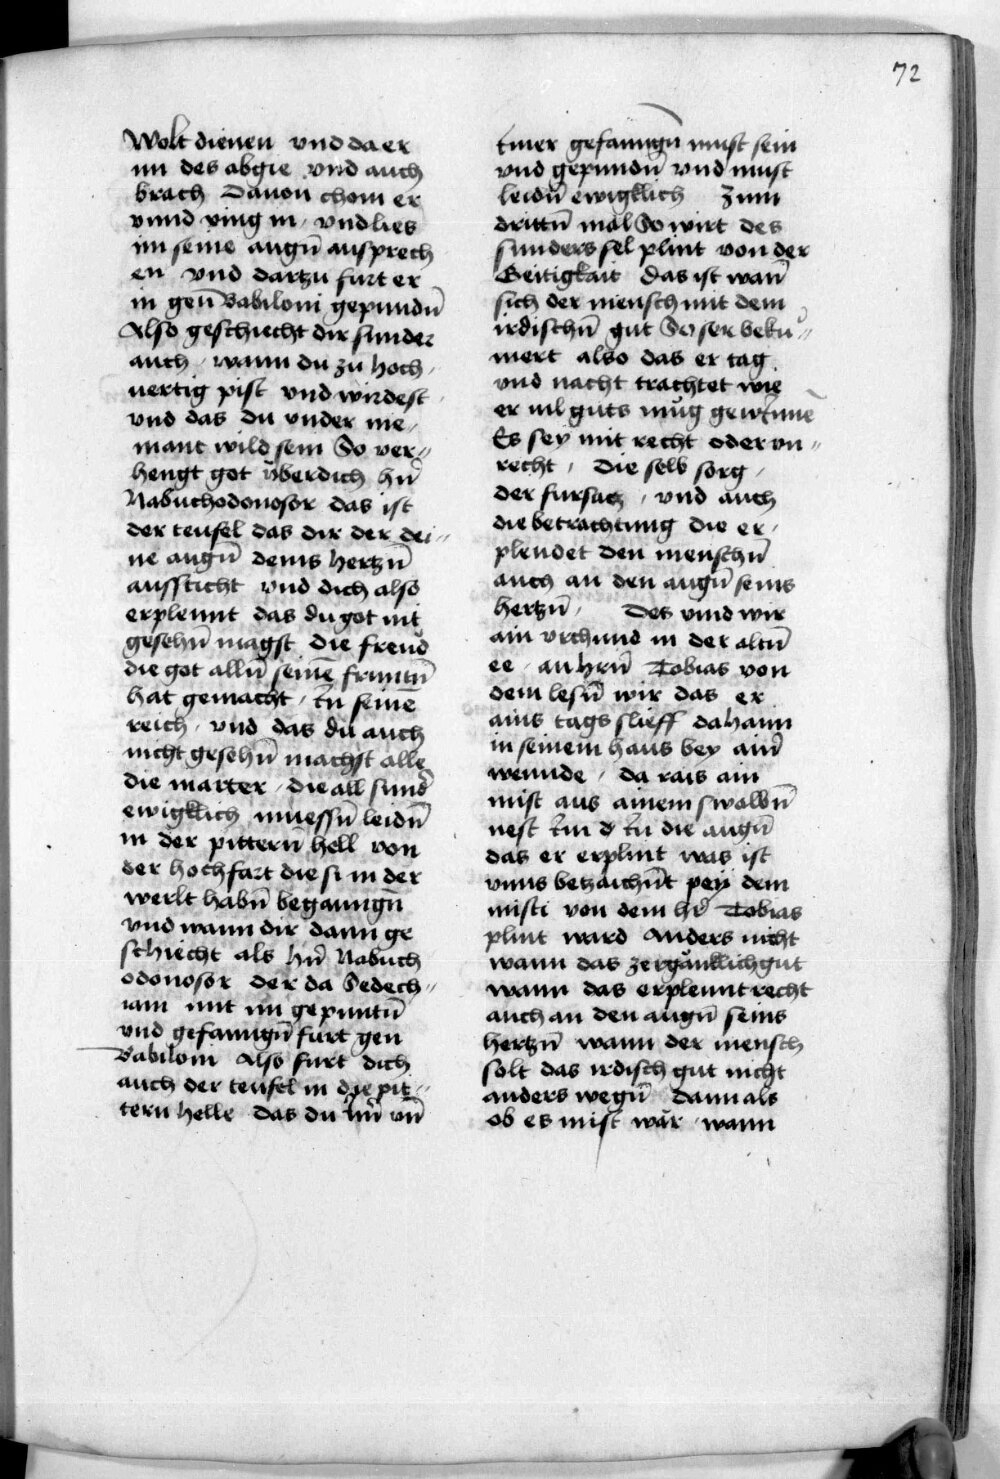 72
Wolt dienen vnd da er
im des abgie vnd auch
brach Dauon chom er
vnnd ving in / vnd lies
im seine augn̄ ausprech
en vnd dartzu furt er
in gen̄ Babiloni gepundn̄
Also geschiecht dir sunder
auch / wann du zu hoch /
uertig pist vnd wirdest
vnd das du vnder nie /
mant wild sein So ver〃
hengt got v̈ber dich hr̄n
Nabuchodonosor das ist
der teufel das dir der dei〃
ne augn̄ deins hertzn̄
aussticht vnd dich also
erplennt das du got nit
gesehn̄ magst die freud
die got alln̄ seinē fruntn̄
hat gemacht / in seinē
reich / vnd das du auch
nicht gesehn̄ machst alle
die marter / die all sund̄
ewigklich muessn̄ leidn̄
in der pittern̄ hell von
der hochfart die si in der
werlt habn̄ begangn̄
vnd wann dir dann ge
schiecht als hr̄n Nabuch
odonosor der da Sedech〃
iam mit im gepuntn̄
vnd gefanngn̄ furt gen
Babiloni Also furt dich
auch der teufel in die pit〃
tern helle das du im̄ vn̄
einer gefanngn̄ must sein
vnd gepundn̄ vnd must
leidn̄ ewigklich Zum
drittn̄ mal So wirt des
sunders sel plint von der
Geitigkait Das ist wan̄
sich der mensch mit dem
irdischn̄ gut So ser beku〃
mert also das er tag
vnd nacht trachtet wie
er uil guts mug gewinnē
Es sey mit recht oder vn〃
recht / Die selb sorg /
der fursatz / vnd auch
die betrachtung die er /
plendet den menschn̄
auch an den augn̄ seins
hertzn̄ / Des vind wir
ain vrchund in der altn̄
ee / an hrn̄ Tobias von
dem lesn̄ wir das er
ains tags slieff dahaim
in seinem haus bey ain̄
wennde / da rais ain
mist aus ainem swalbn̄
nest im d in die augn̄
das er erplint was ist
vnns betzaichn̄t pey dem
misti von dem hr̄ Tobias
plint ward Anders nicht
wann das zergäncklich gut
wann das erplennt recht
auch an den augn̄ seins
hertzn̄ wann der mensch
solt das irdisch gut nicht
anders wegn̄ dann als
ob es mist wär / wann